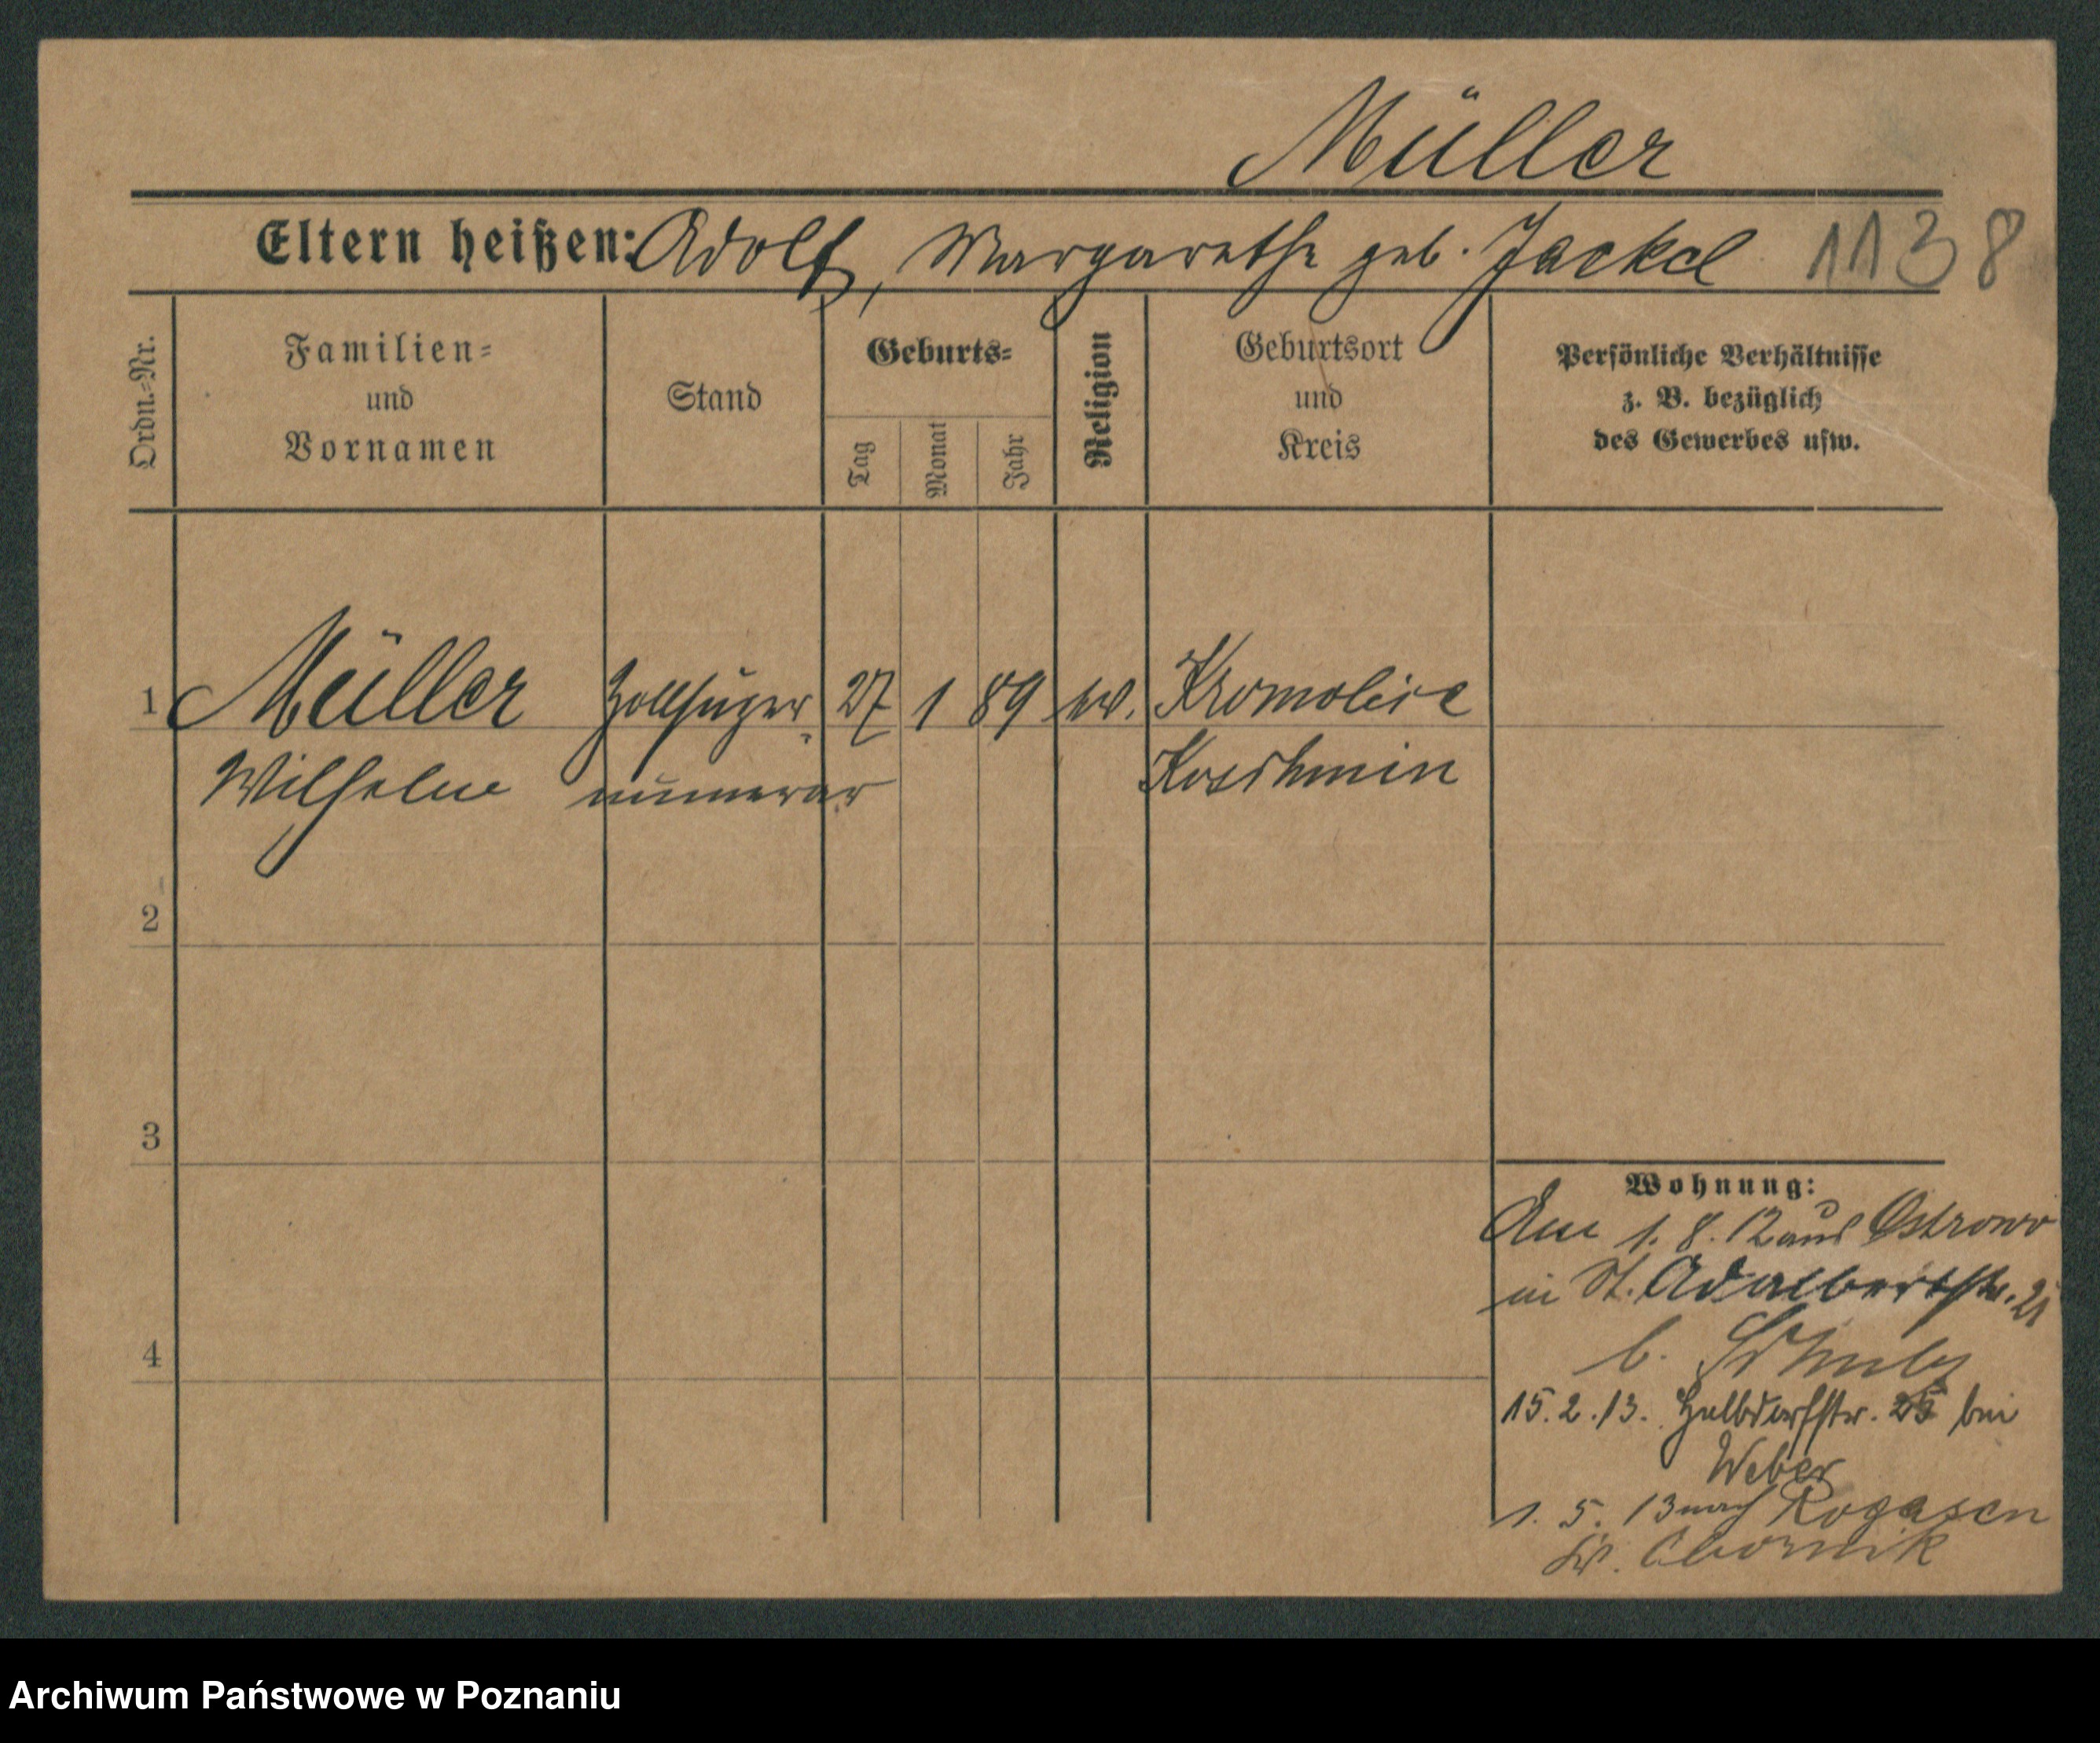 Müller
Eltern heißen: Adolf, Margarethe geb. Jackel 1138
Ordn.-Nr.
Familien-
und
Vornamen
Stand
Geburts-
Tag
Monat
Jahr
Religion
Geburtsort
und
Kreis
Persönliche Verhältnisse
z. B. bezüglich
des Gewerbes usw.
1 Müller Zollsuper 27 1 89 ev. Kromolice
Wilhelm numerar Koschmin
2
3
4
Wohnung:
Am 1. 8. 12 aus Ostrowo
in St. Adalbertstr. 21
b. Schulz
15.2.13. Halbdorfstr. 25 bei
Weber
1. 5. 13 nach Rogasen
Kr. Obornik
Archiwum Państwowe w Poznaniu